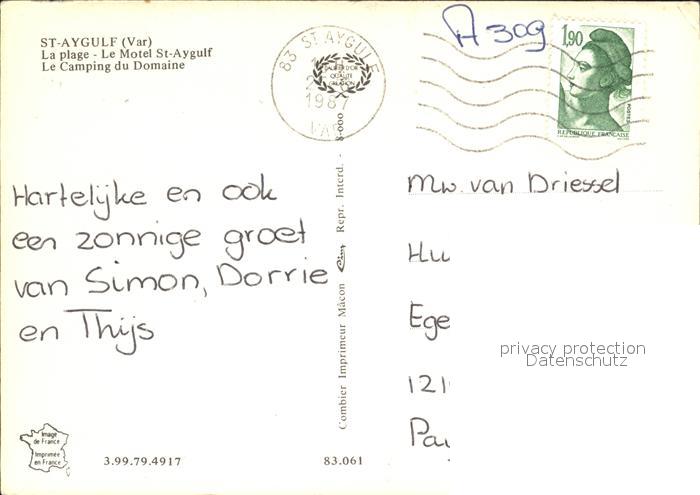 ST-AYGULF (Var)
La plage - Le Motel St-Aygulf
Le Camping du Domaine
83 ST AYGULF
1987
VAR
A 309
1,90
POSTES
REPUBLIQUE FRANÇAISE
Hartelijke en ook
een zonnige groet
van Simon, Dorrie
en Thijs
Combier Imprimeur Mâcon Cim Repr. Interd. - 8-000
Mw. van Driessel
Hu
Ege
121
Pa
privacy protection
Datenschutz
Image
de France
Imprimée
en France
3.99.79.4917
83.061